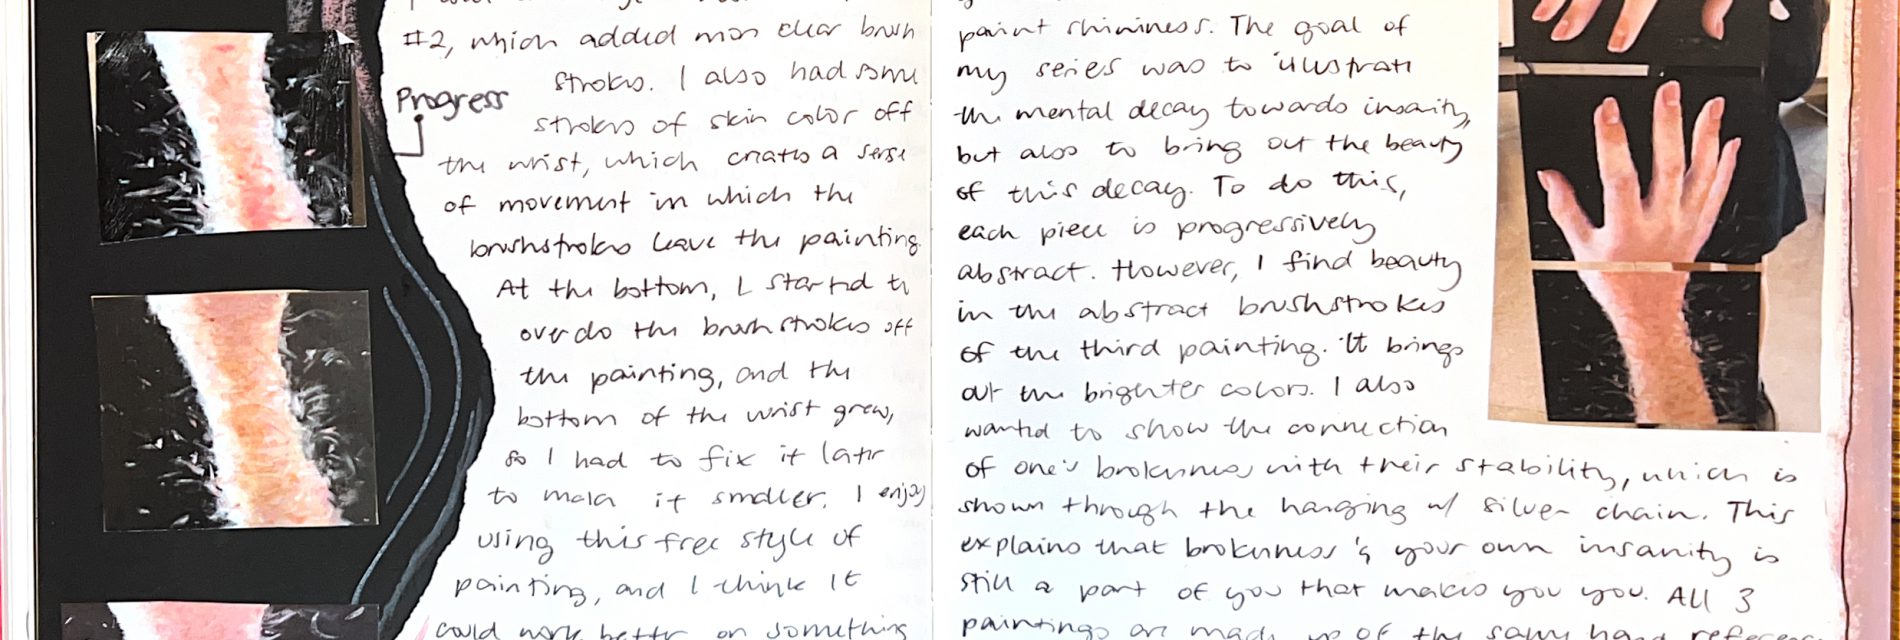 #2, which added more clear brush
strokes. I also had some
Progress
strokes of skin color off
the wrist, which creates a sense
of movement in which the
brushstrokes leave the painting.
At the bottom, I started to
overdo the brushstrokes off
the painting, and the
bottom of the wrist grew,
so I had to fix it later
to make it smaller. I enjoy
using this free style of
painting, and I think it
could work better on something
paint shininess. The goal of
my series was to illustrate
the mental decay towards insanity,
but also to bring out the beauty
of this decay. To do this,
each piece is progressively
abstract. However, I find beauty
in the abstract brushstrokes
of the third painting. It brings
out the brighter colors. I also
wanted to show the connection
of one's brokenness with their stability, which is
shown through the hanging w/ silver chain. This
explains that brokenness & your own insanity is
still a part of you that makes you you. All 3
paintings are made up of the same hand reference